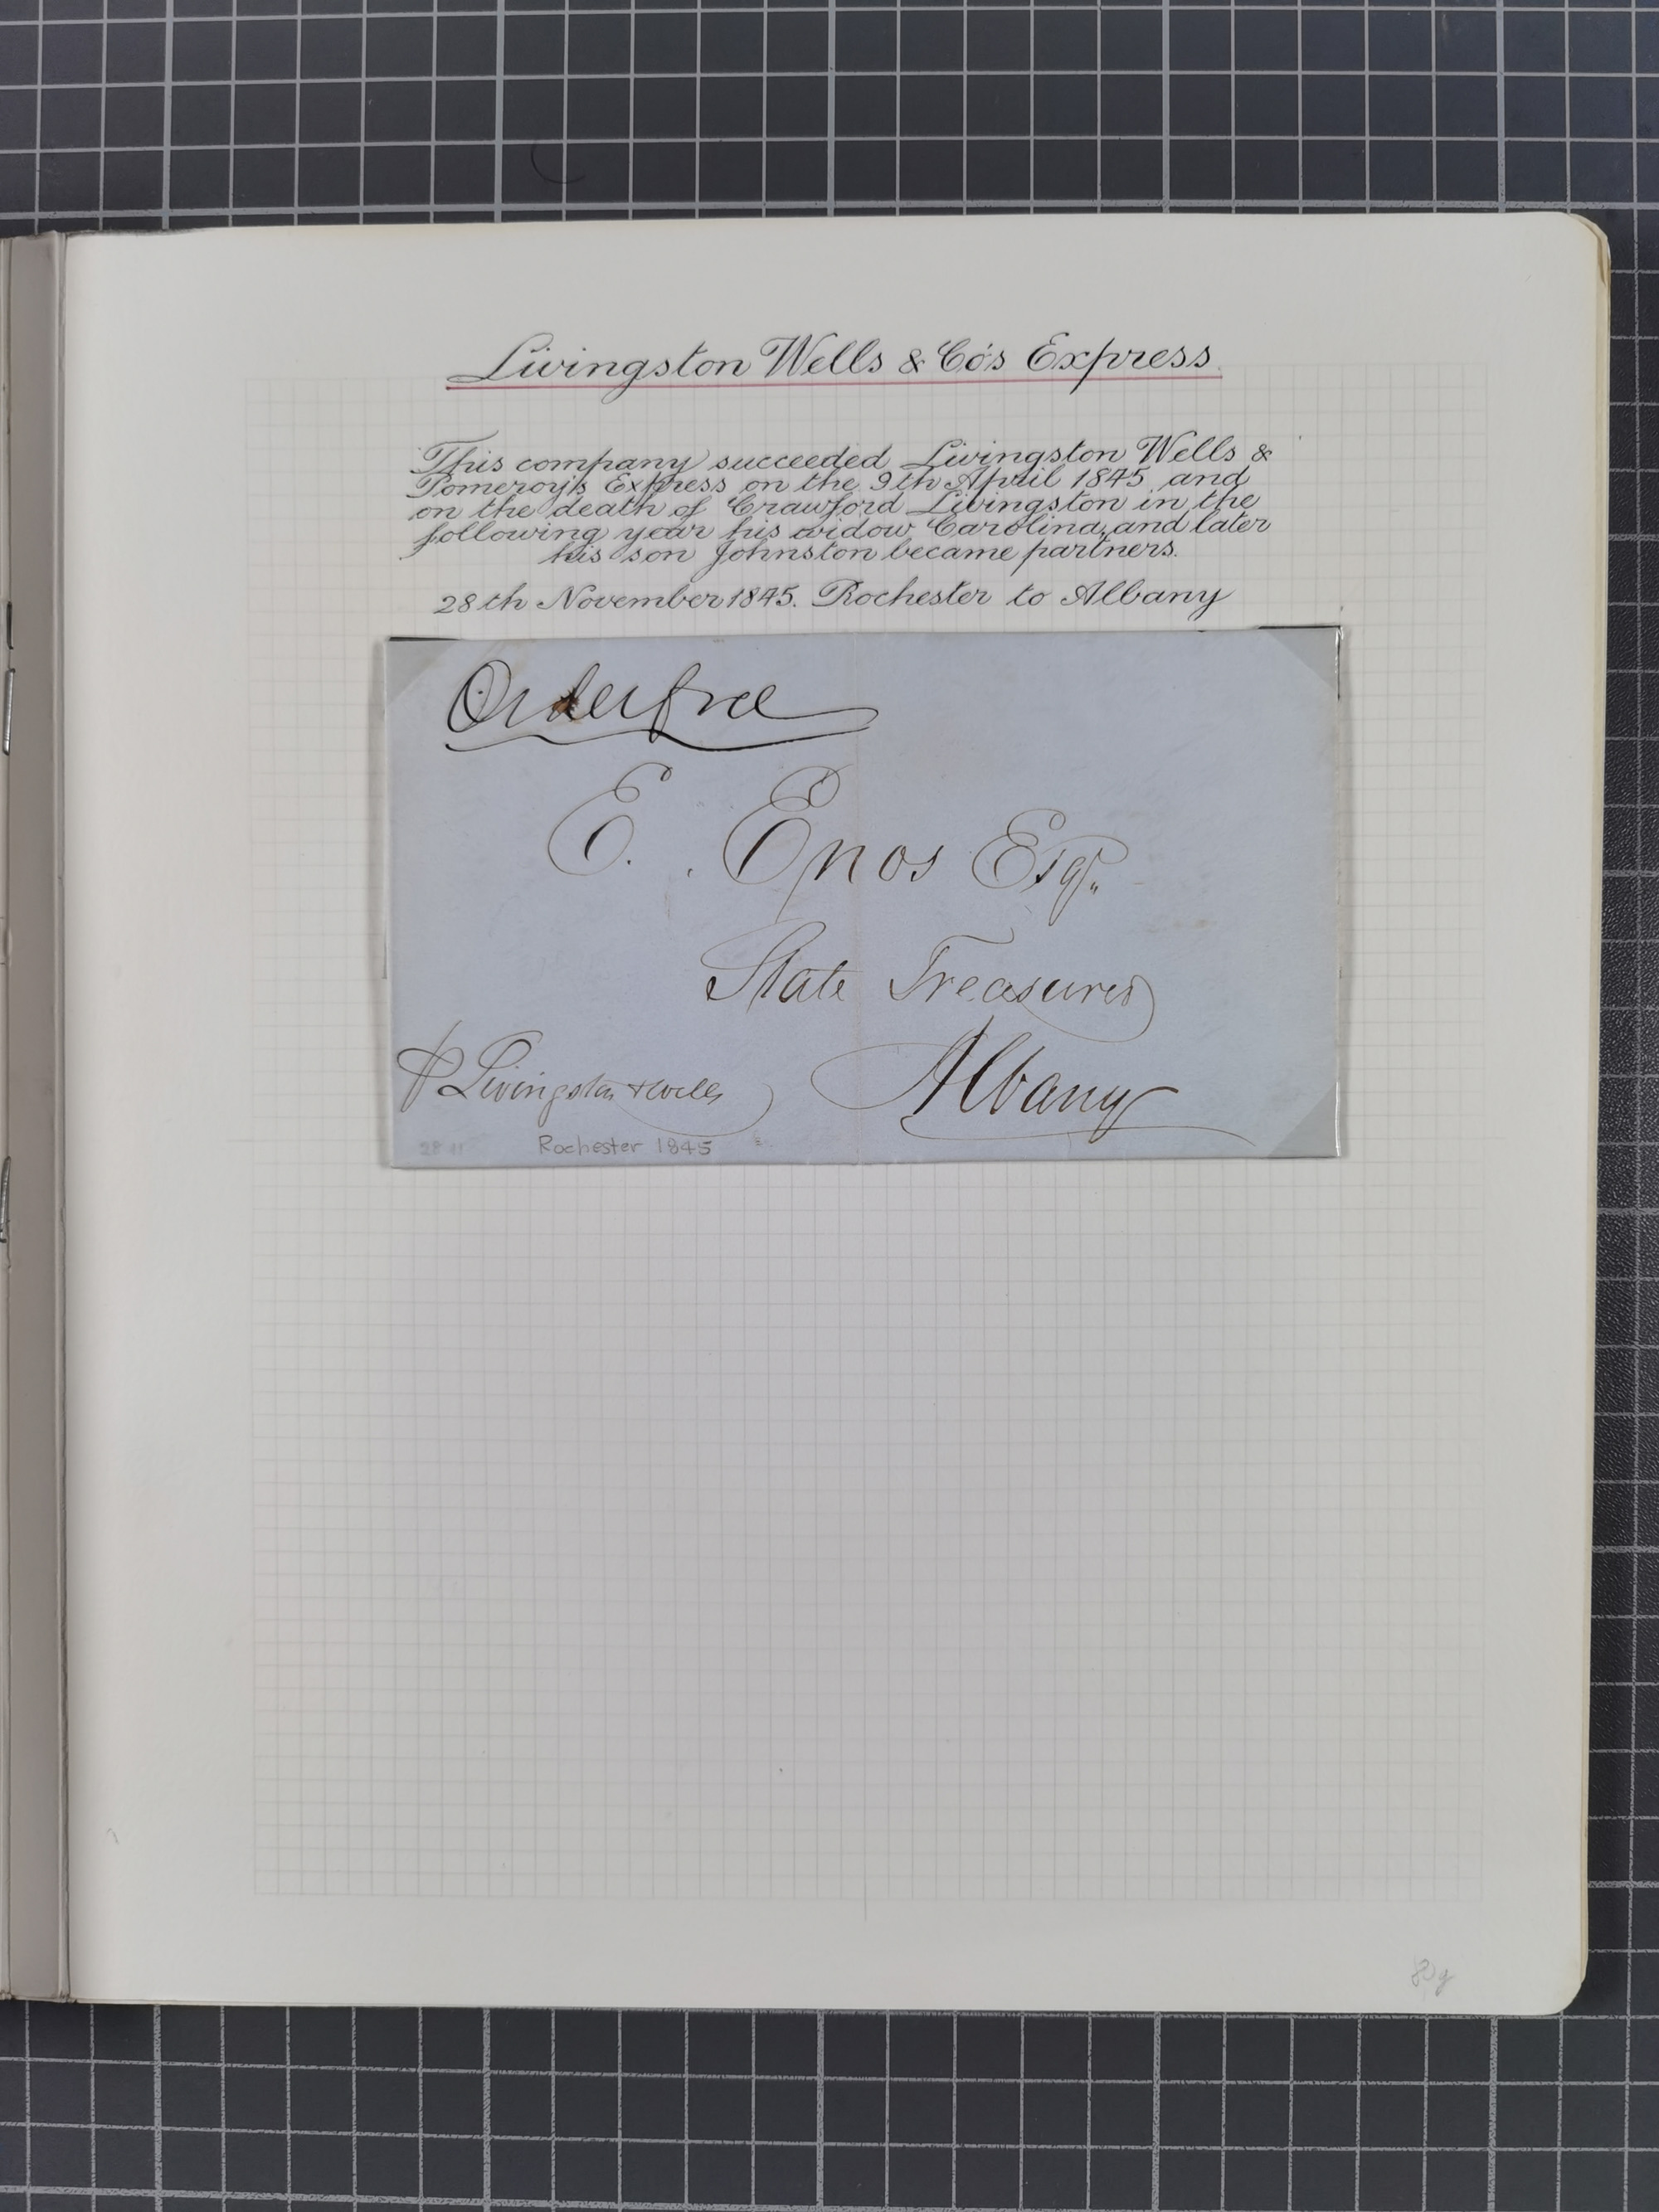 Livingston Wells & Co's Express
This company succeeded Livingston Wells &
Pomeroy's Express on the 9th April 1845 and
on the death of Crawford Livingston in the
following year his widow Carolina, and later
his son Johnston became partners.
28th November 1845. Rochester to Albany
Order free
E. Enos Esqr.
State Treasurer
Albany
p Livingston & Wells
28 11 Rochester 1845